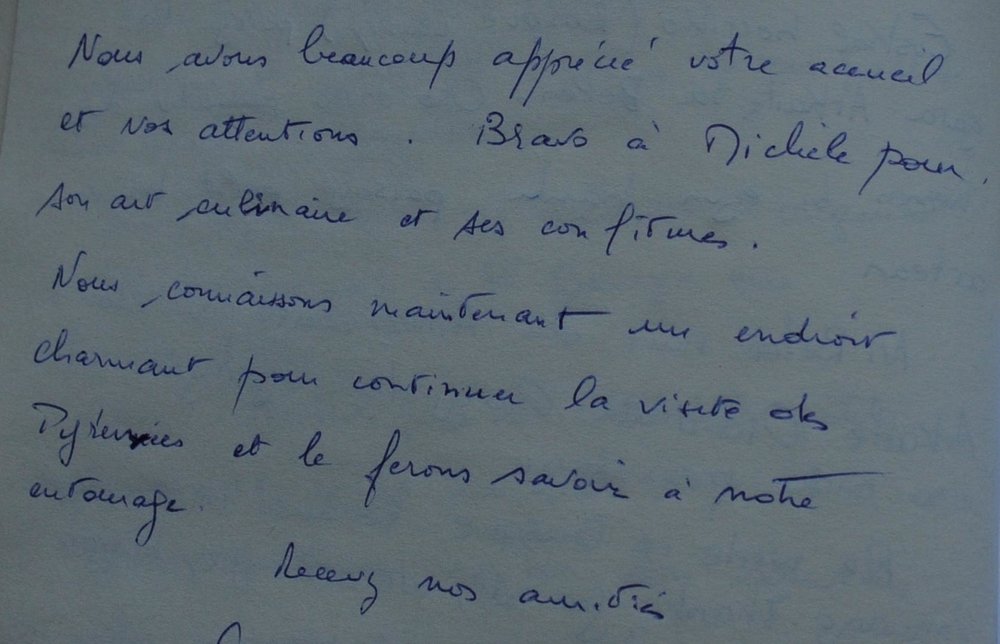 Nous avons beaucoup apprécié votre accueil
et vos attentions. Bravo à Michèle pour
son art culinaire et ses confitures.
Nous connaissons maintenant un endroit
charmant pour continuer la visite des
Pyrénées et le ferons savoir à notre
entourage.
Recevez nos amitiés